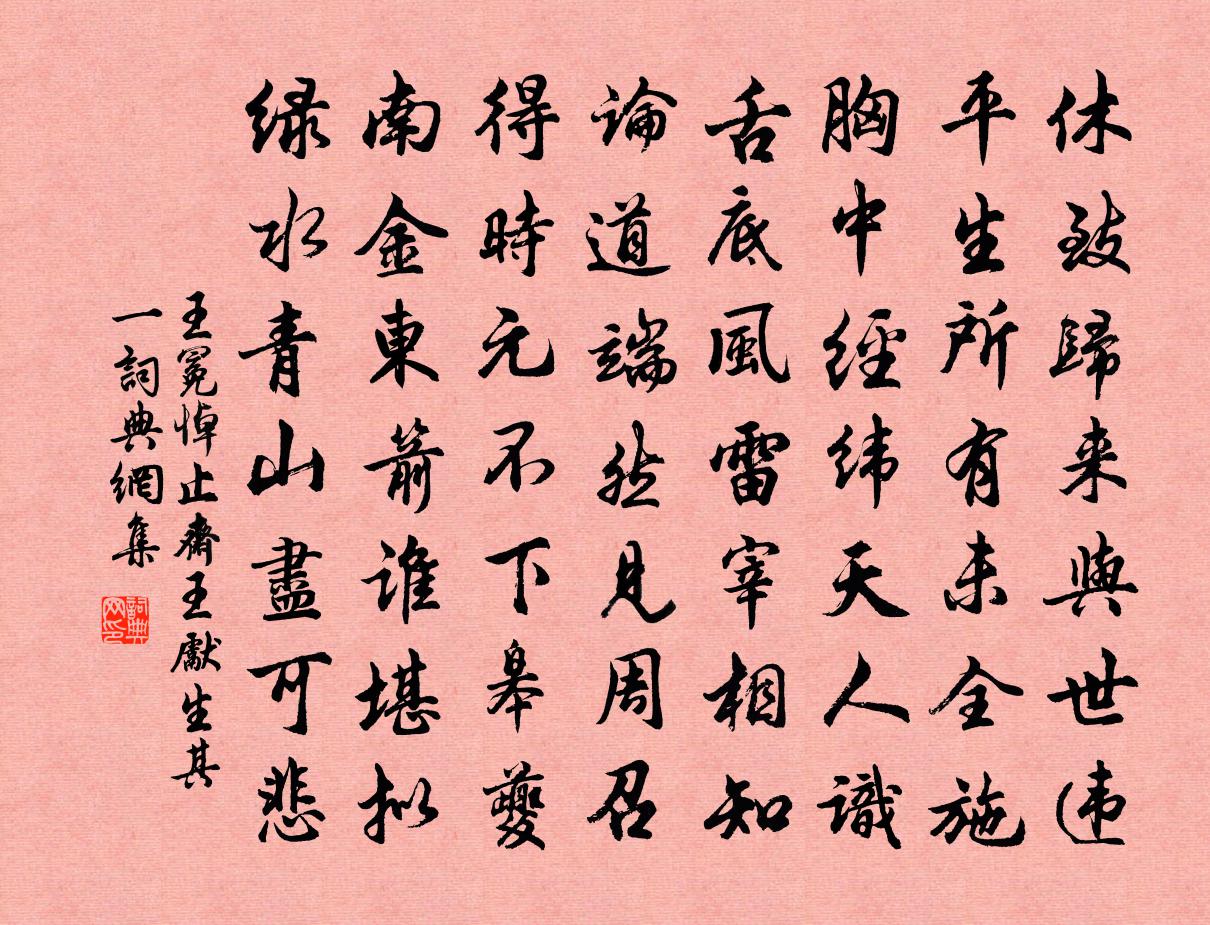 休致歸来與世违
平生所有未全施
胸中經纬天人識
舌底風雷宰相知
論道端然見周召
得時元不下皋夔
南金東箭谁堪拟
绿水青山盡可悲
王冕悼止齋王獻生其
一詞典網集
詞典网印